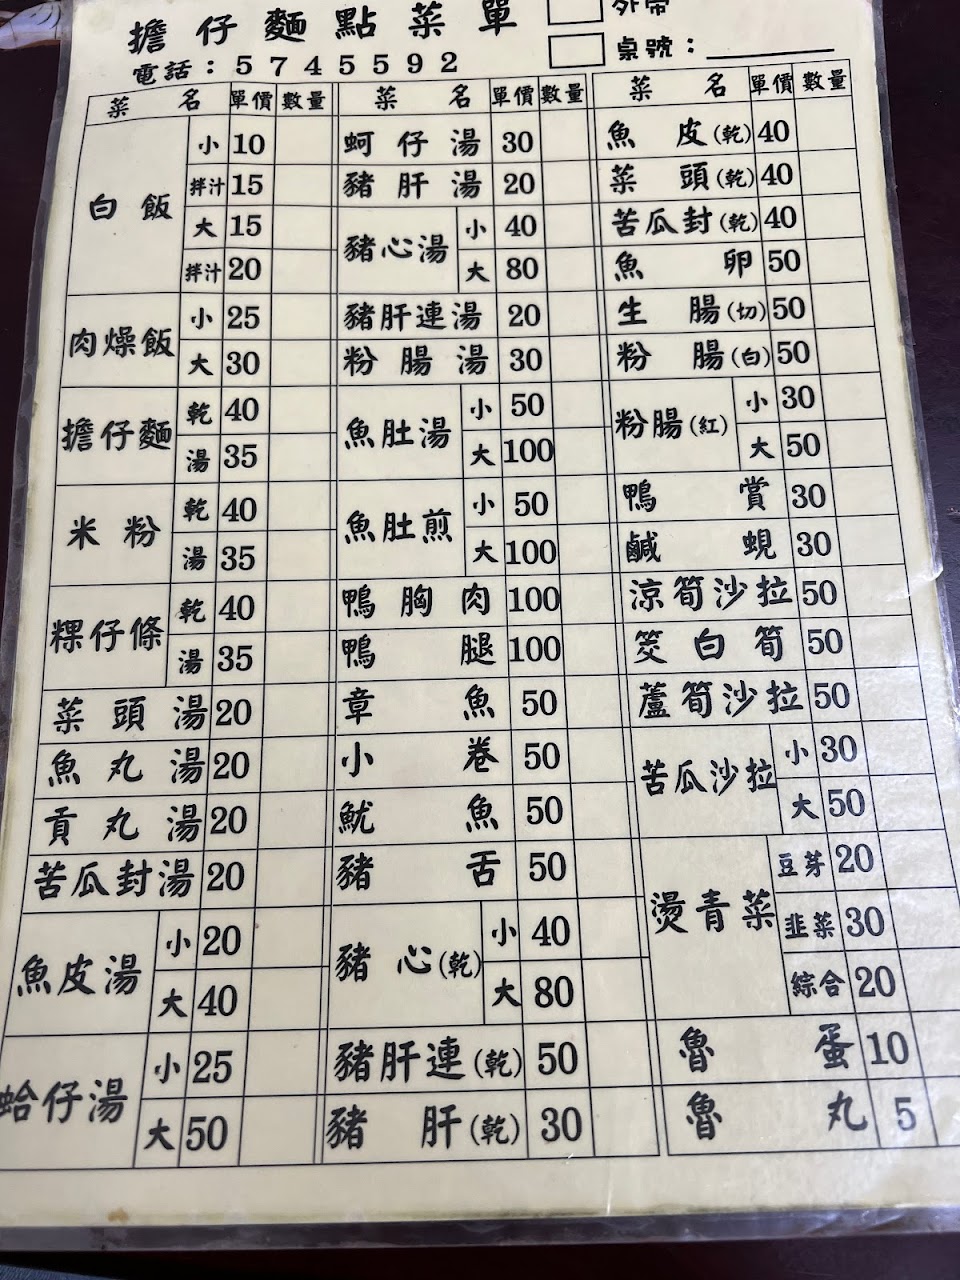 擔仔麵點菜單
外帶
電話：5745592
桌號：
菜名 單價 數量
白飯 小 10
拌汁 15
大 15
拌汁 20
肉燥飯 小 25
大 30
擔仔麵 乾 40
湯 35
米粉 乾 40
湯 35
粿仔條 乾 40
湯 35
菜頭湯 20
魚丸湯 20
貢丸湯 20
苦瓜封湯 20
魚皮湯 小 20
大 40
蛤仔湯 小 25
大 50
菜名 單價 數量
蚵仔湯 30
豬肝湯 20
豬心湯 小 40
大 80
豬肝連湯 20
粉腸湯 30
魚肚湯 小 50
大 100
魚肚煎 小 50
大 100
鴨胸肉 100
鴨腿 100
章魚 50
小卷 50
魷魚 50
豬舌 50
豬心(乾) 小 40
大 80
豬肝連(乾) 50
豬肝(乾) 30
菜名 單價 數量
魚皮(乾) 40
菜頭(乾) 40
苦瓜封(乾) 40
魚卵 50
生腸(切) 50
粉腸(白) 50
粉腸(紅) 小 30
大 50
鴨賞 30
鹹蜆 30
涼筍沙拉 50
筊白筍 50
蘆筍沙拉 50
苦瓜沙拉 小 30
大 50
燙青菜 豆芽 20
韭菜 30
綜合 20
魯蛋 10
魯丸 5